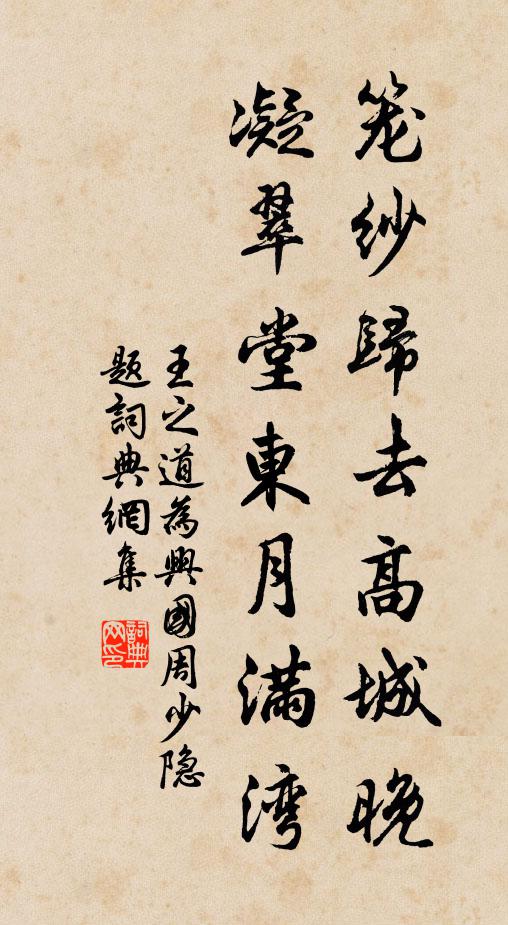 笼纱歸去高城晚
凝翠堂東月满湾
王之道為興國周少隐
题詞典網集
詞典網印